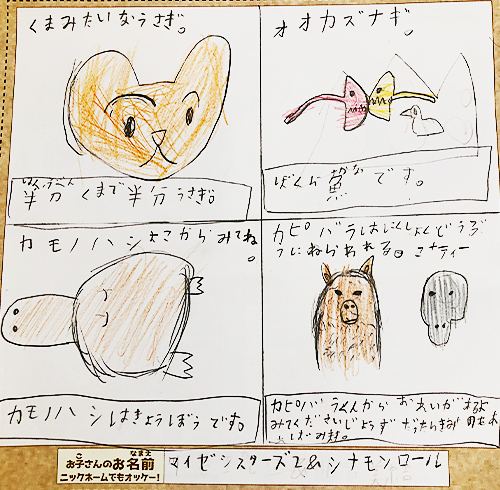 くまみたいなうさぎ。
オオカズナギ。
はんぶん
半分くまで半分うさぎ。
ぼくら
です。
カモノハシよこからみてね。
カピバラはにくしょくどうぶ
つにねらわれる。
カモノハシはきょうぼうです。
カピバラくんから おねいがするよ
みてくださいじょうず だったらきみ
お子さんのお名前
こ
なまえ
ニックホームでもオッケー!
マイゼンシスターズ2&シナモンロール